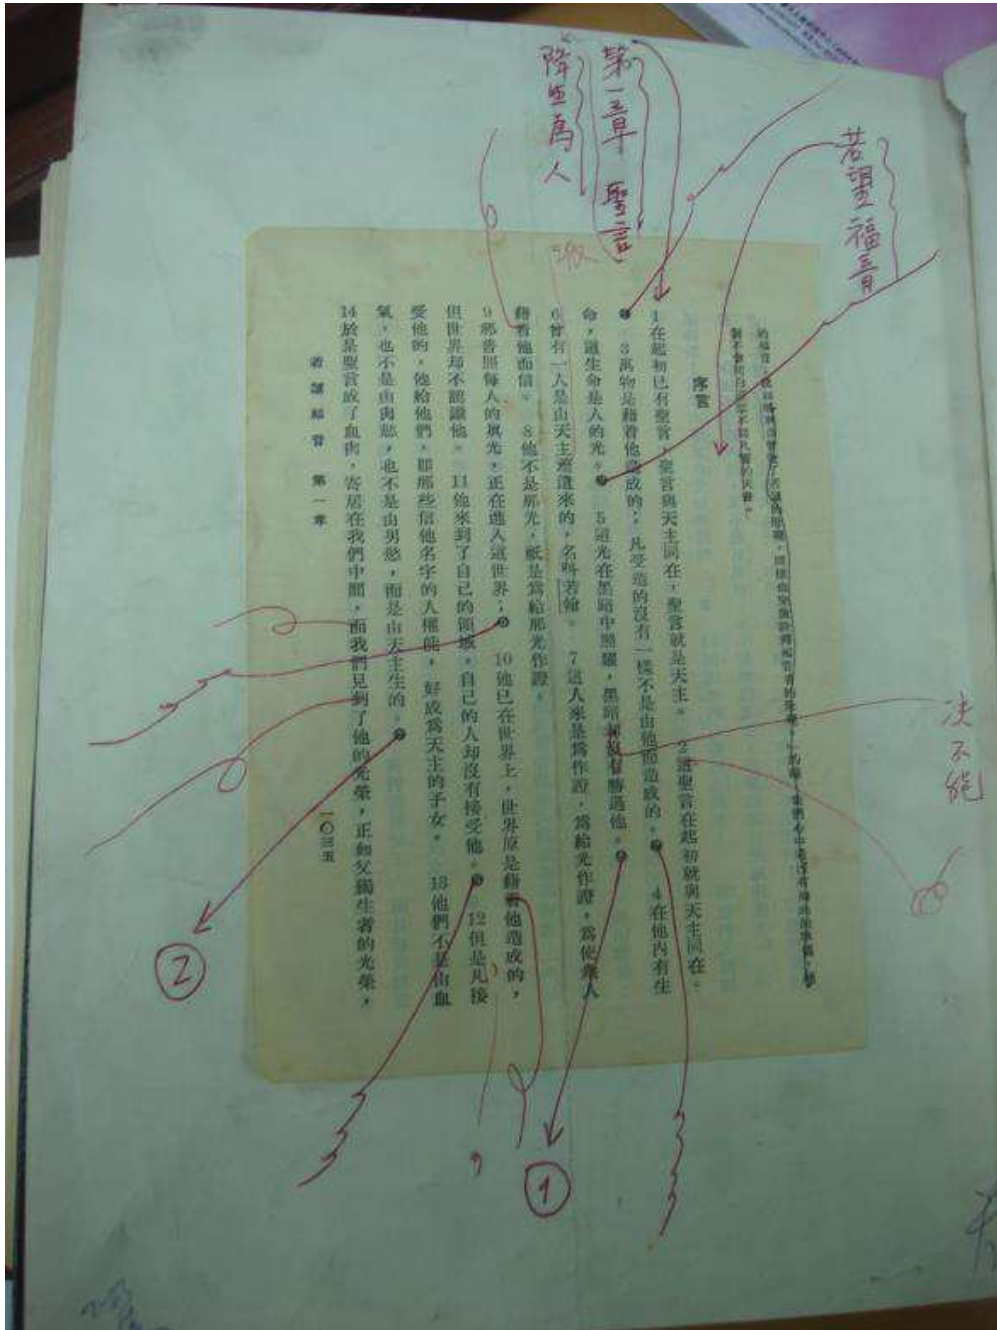 若望福音
第一章 聖言
降生為人
決不能
序言
1在起初已有聖言，聖言與天主同在，聖言就是天主。 2這聖言在起初就與天主同在。
3萬物是藉着他造成的；凡受造的沒有一樣不是由他而造成的。 4在他內有生
命，這生命是人的光。 5這光在黑暗中照耀，黑暗卻沒有勝過他。
6曾有一人是由天主遣來的，名叫若翰。 7這人來是爲作證，爲給光作證，爲使衆人
藉着他而信。 8他不是那光，祇是爲給那光作證。
9那普照每人的眞光，正在進入這世界； 10他已在世界上，世界原是藉着他造成的，
但世界却不認識他。 11他來到了自己的領域，自己的人却沒有接受他。 12但是凡接
受他的，他給他們，即那些信他名字的人權能，好成爲天主的子女。 13他們不是由血
氣，也不是由肉慾，也不是由男慾，而是由天主生的。
14於是聖言成了血肉，寄居在我們中間，而我們見到了他的光榮，正如父獨生者的光榮，
若望福音 第一章 一〇三五
①
②